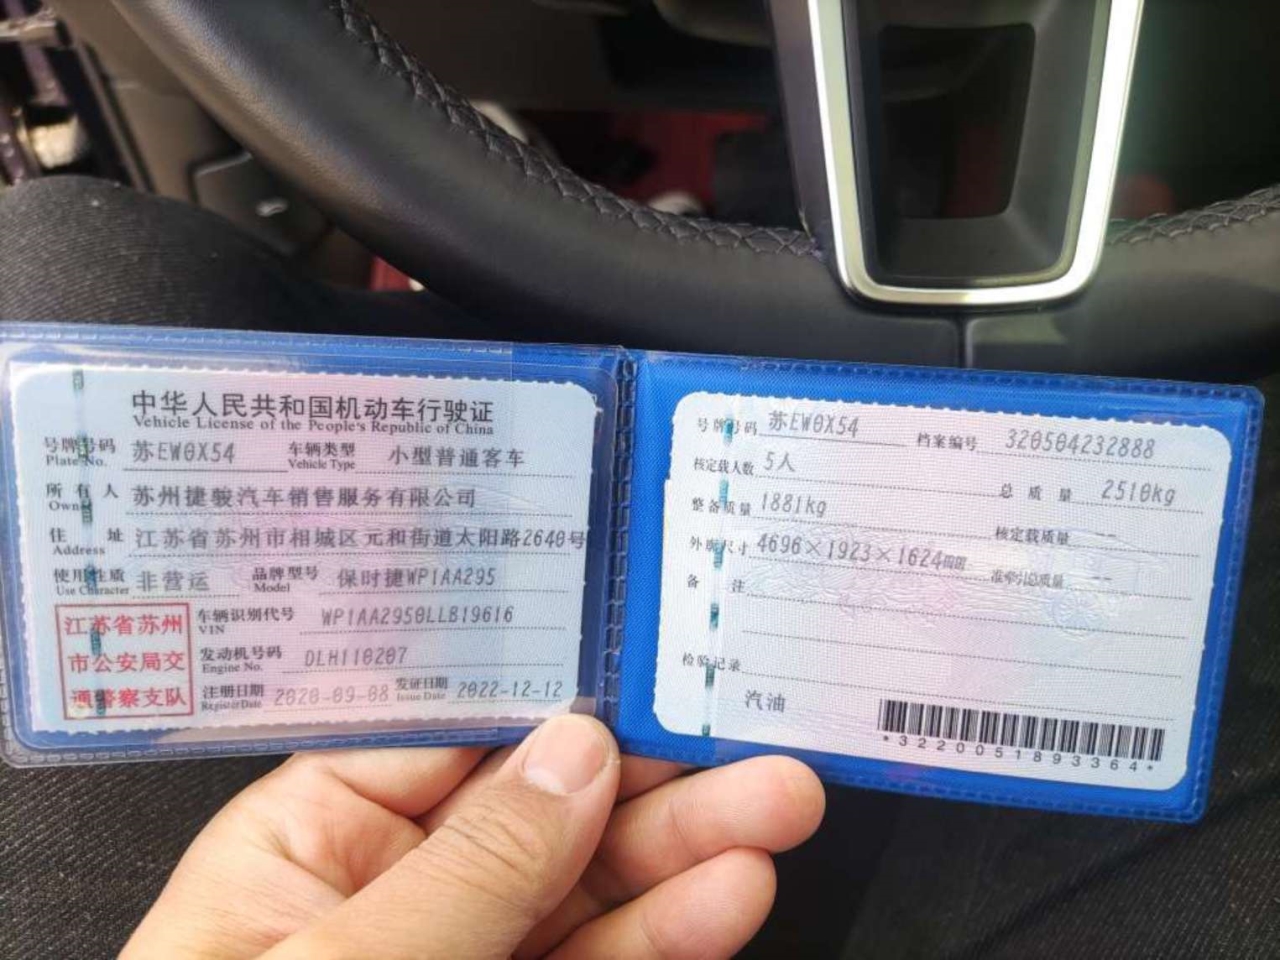 中华人民共和国机动车行驶证
Vehicle License of the People's Republic of China
号牌号码 苏EW0X54 车辆类型 小型普通客车
Plate No. Vehicle Type
所有人 苏州捷骏汽车销售服务有限公司
Owner
住址 江苏省苏州市相城区元和街道太阳路2640号
Address
使用性质 非营运 品牌型号 保时捷WP1AA295
Use Character Model
江苏省苏州
市公安局交
通警察支队
车辆识别代号 WP1AA2950LLB19616
VIN
发动机号码 DLH110207
Engine No.
注册日期 2020-09-08 发证日期 2022-12-12
Register Date Issue Date
号牌号码 苏EW0X54 档案编号 320504232888
核定载人数 5人 总质量 2510kg
整备质量 1881kg 核定载质量 --
外廓尺寸 4696×1923×1624mm 准牵引总质量 --
备注
检验记录
汽油
*3220051893364*